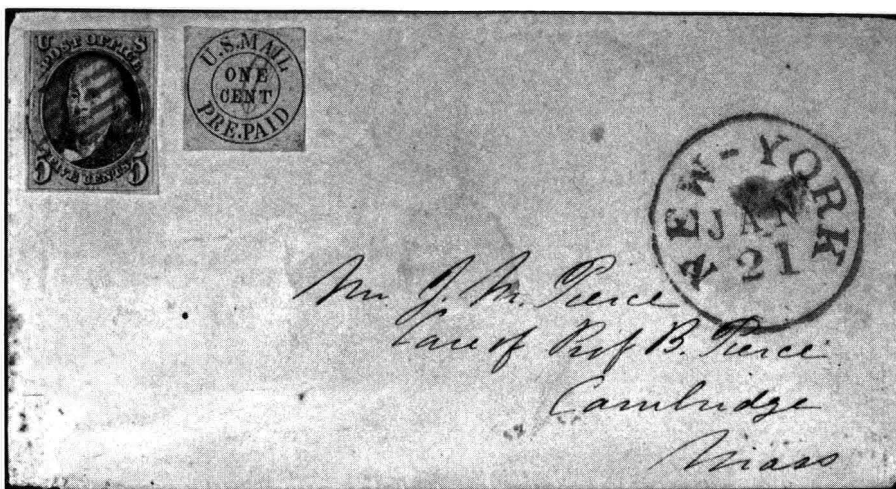 U S
POST OFFICE
FIVE CENTS
5 5
U.S.MAIL
ONE
CENT
PRE.PAID
NEW-YORK
JAN
21
Mr. J. M. Pierce
Care of Prof B. Pierce
Cambridge
Mass